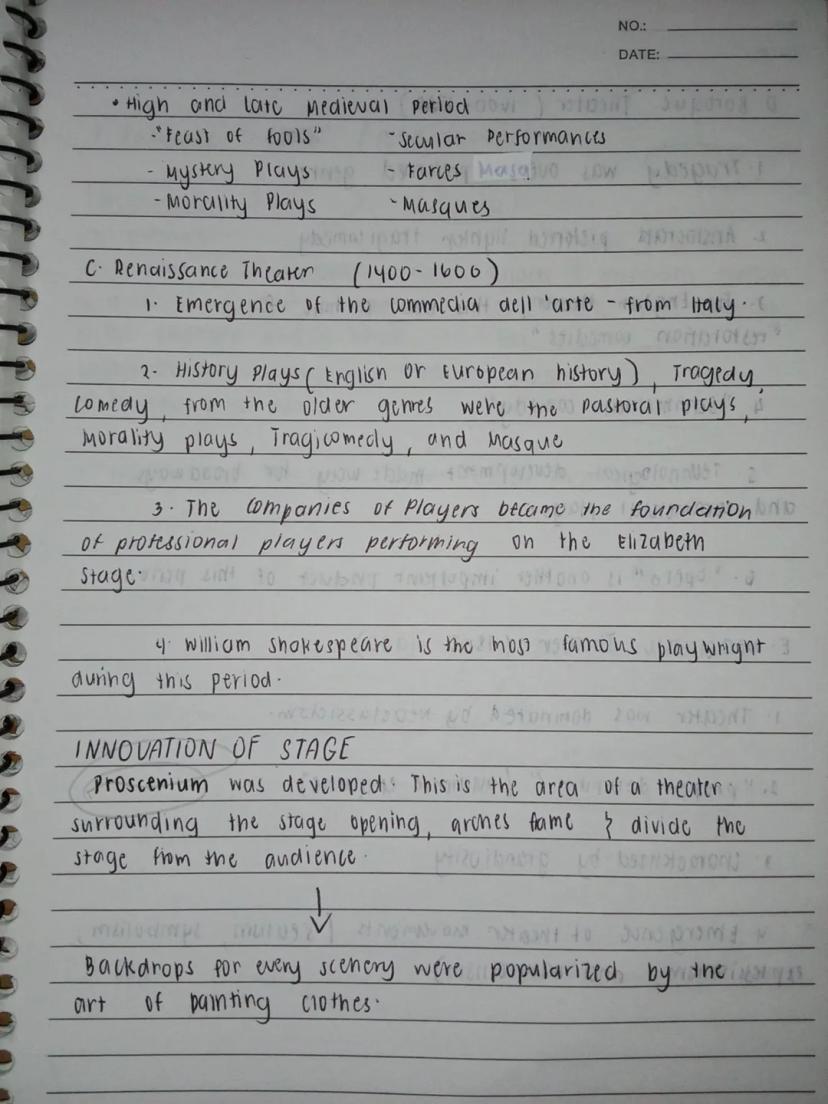 NO.:
DATE:
• High and late Medieval Period
- "Feast of fools" - Secular Performances
- Mystery Plays - Farces
- Morality Plays - Masques
C. Renaissance Theater (1400-1600)
1. Emergence of the commedia dell 'arte - from Italy.
2. History Plays (English or European history), Tragedy,
comedy, from the older genres were the pastoral plays,
Morality plays, Tragicomedy, and Masque
3. The Companies of Players became the foundation
of professional players performing on the Elizabeth
stage.
4. William Shakespeare is the most famous playwright
during this period.
INNOVATION OF STAGE
Proscenium was developed. This is the area of a theater
surrounding the stage opening, arches frame & divide the
stage from the audience.
Backdrops for every scenery were popularized by the
art of painting clothes.